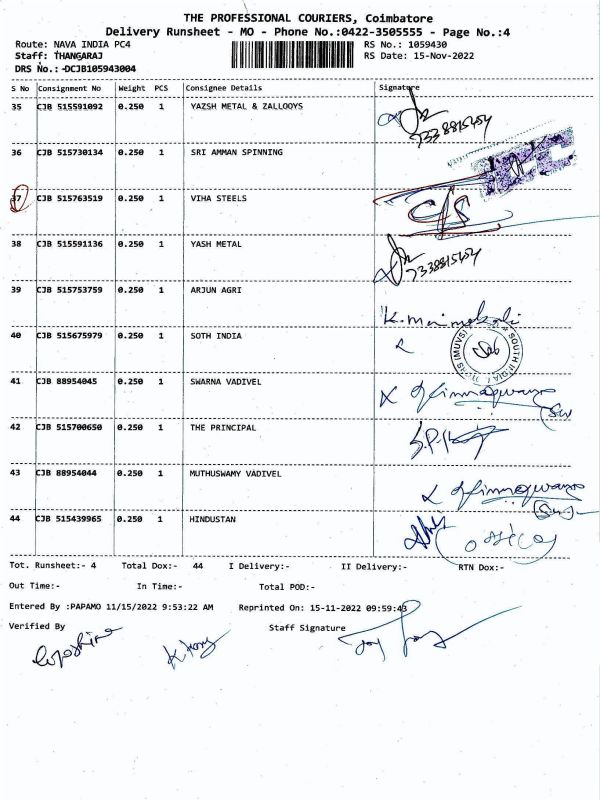 THE PROFESSIONAL COURIERS, Coimbatore
Delivery Runsheet - MO - Phone No.:0422-3505555 - Page No.:4
Route: NAVA INDIA PC4 RS No.: 1059430
Staff: THANGARAJ RS Date: 15-Nov-2022
DRS No.: -DCJB105943004
S No Consignment No Weight PCS Consignee Details Signature
35 CJB 515591092 0.250 1 YAZSH METAL & ZALLOOYS
7338815454
36 CJB 515730134 0.250 1 SRI AMMAN SPINNING
37 CJB 515763519 0.250 1 VIHA STEELS C/S
38 CJB 515591136 0.250 1 YASH METAL
7338815454
39 CJB 515753759 0.250 1 ARJUN AGRI
40 CJB 515675979 0.250 1 SOTH INDIA
41 CJB 88954045 0.250 1 SWARNA VADIVEL
42 CJB 515700650 0.250 1 THE PRINCIPAL
43 CJB 88954044 0.250 1 MUTHUSWAMY VADIVEL
44 CJB 515439965 0.250 1 HINDUSTAN
Tot. Runsheet:- 4 Total Dox:- 44 I Delivery:- II Delivery:- RTN Dox:-
Out Time:- In Time:- Total POD:-
Entered By :PAPAMO 11/15/2022 9:53:22 AM Reprinted On: 15-11-2022 09:59:43
Verified By Staff Signature